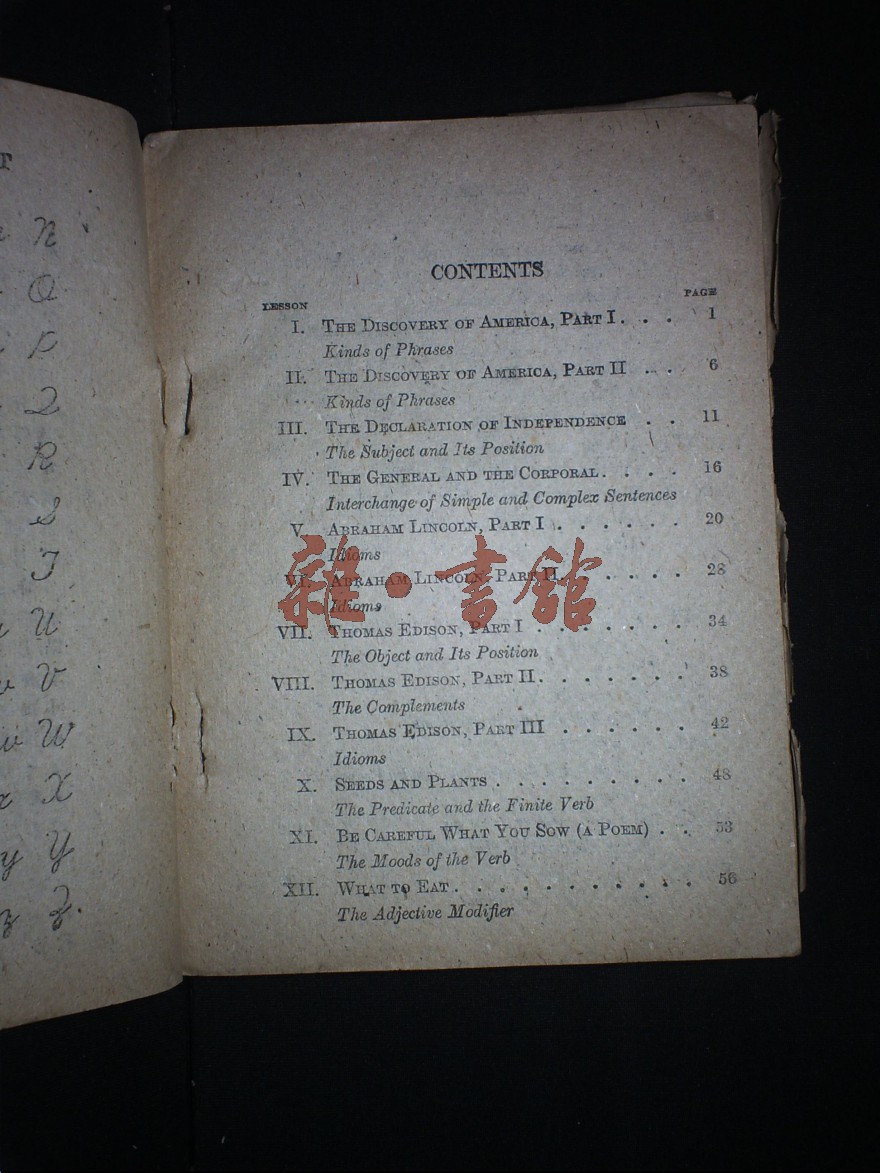 T
N
O
P
Q
R
S
T
U
V
W
X
y Y
z Z.
CONTENTS
LESSON PAGE
I. THE DISCOVERY OF AMERICA, PART I. . . 1
Kinds of Phrases
II. THE DISCOVERY OF AMERICA, PART II . . . 6
Kinds of Phrases
III. THE DECLARATION OF INDEPENDENCE . . 11
The Subject and Its Position
IV. THE GENERAL AND THE CORPORAL. . . . 16
Interchange of Simple and Complex Sentences
V. ABRAHAM LINCOLN, PART I . . . . . . 20
Idioms
VI. ABRAHAM LINCOLN, PART II . . . . . . 28
Idioms
VII. THOMAS EDISON, PART I . . . . . . . 34
The Object and Its Position
VIII. THOMAS EDISON, PART II. . . . . . . 38
The Complements
IX. THOMAS EDISON, PART III . . . . . . 42
Idioms
X. SEEDS AND PLANTS . . . . . . . . . 48
The Predicate and the Finite Verb
XI. BE CAREFUL WHAT YOU SOW (A POEM) . . 53
The Moods of the Verb
XII. WHAT TO EAT. . . . . . . . . . . 56
The Adjective Modifier
雜·書館